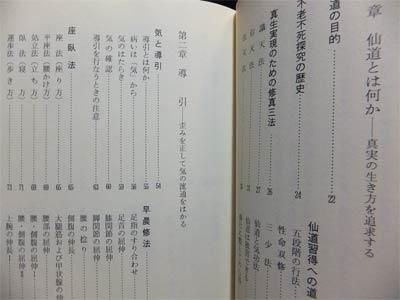 章 仙道とは何か――真実の生き方を追求する
道の目的
22
不老不死探究の歴史
24
真生実現のための修真三法
26
仙道習得への道
五段階の行法
性命双修
三少法
仙道と気功法
第二章 導引 歪みを正して気の流通をはかる
気と導引
54
導引とは何か
病いは「気」から
気のはたらき
気の確認
導引を行なうときの注意
63
座臥法
65
座法(座り方)
65
平座法(腰かけ方)
68
站立法(立ち方)
69
臥法(寝方)
71
運歩法(歩き方)
73
早晨修法
足指のすり合わせ
足首の屈伸
膝関節の屈伸
脚関節の屈伸
腰の捻り
側腹の伸長
大腿筋および甲状腺の伸
腰部の屈伸
腰・側腹の屈伸
腰・側腹の伸
上腕の伸長